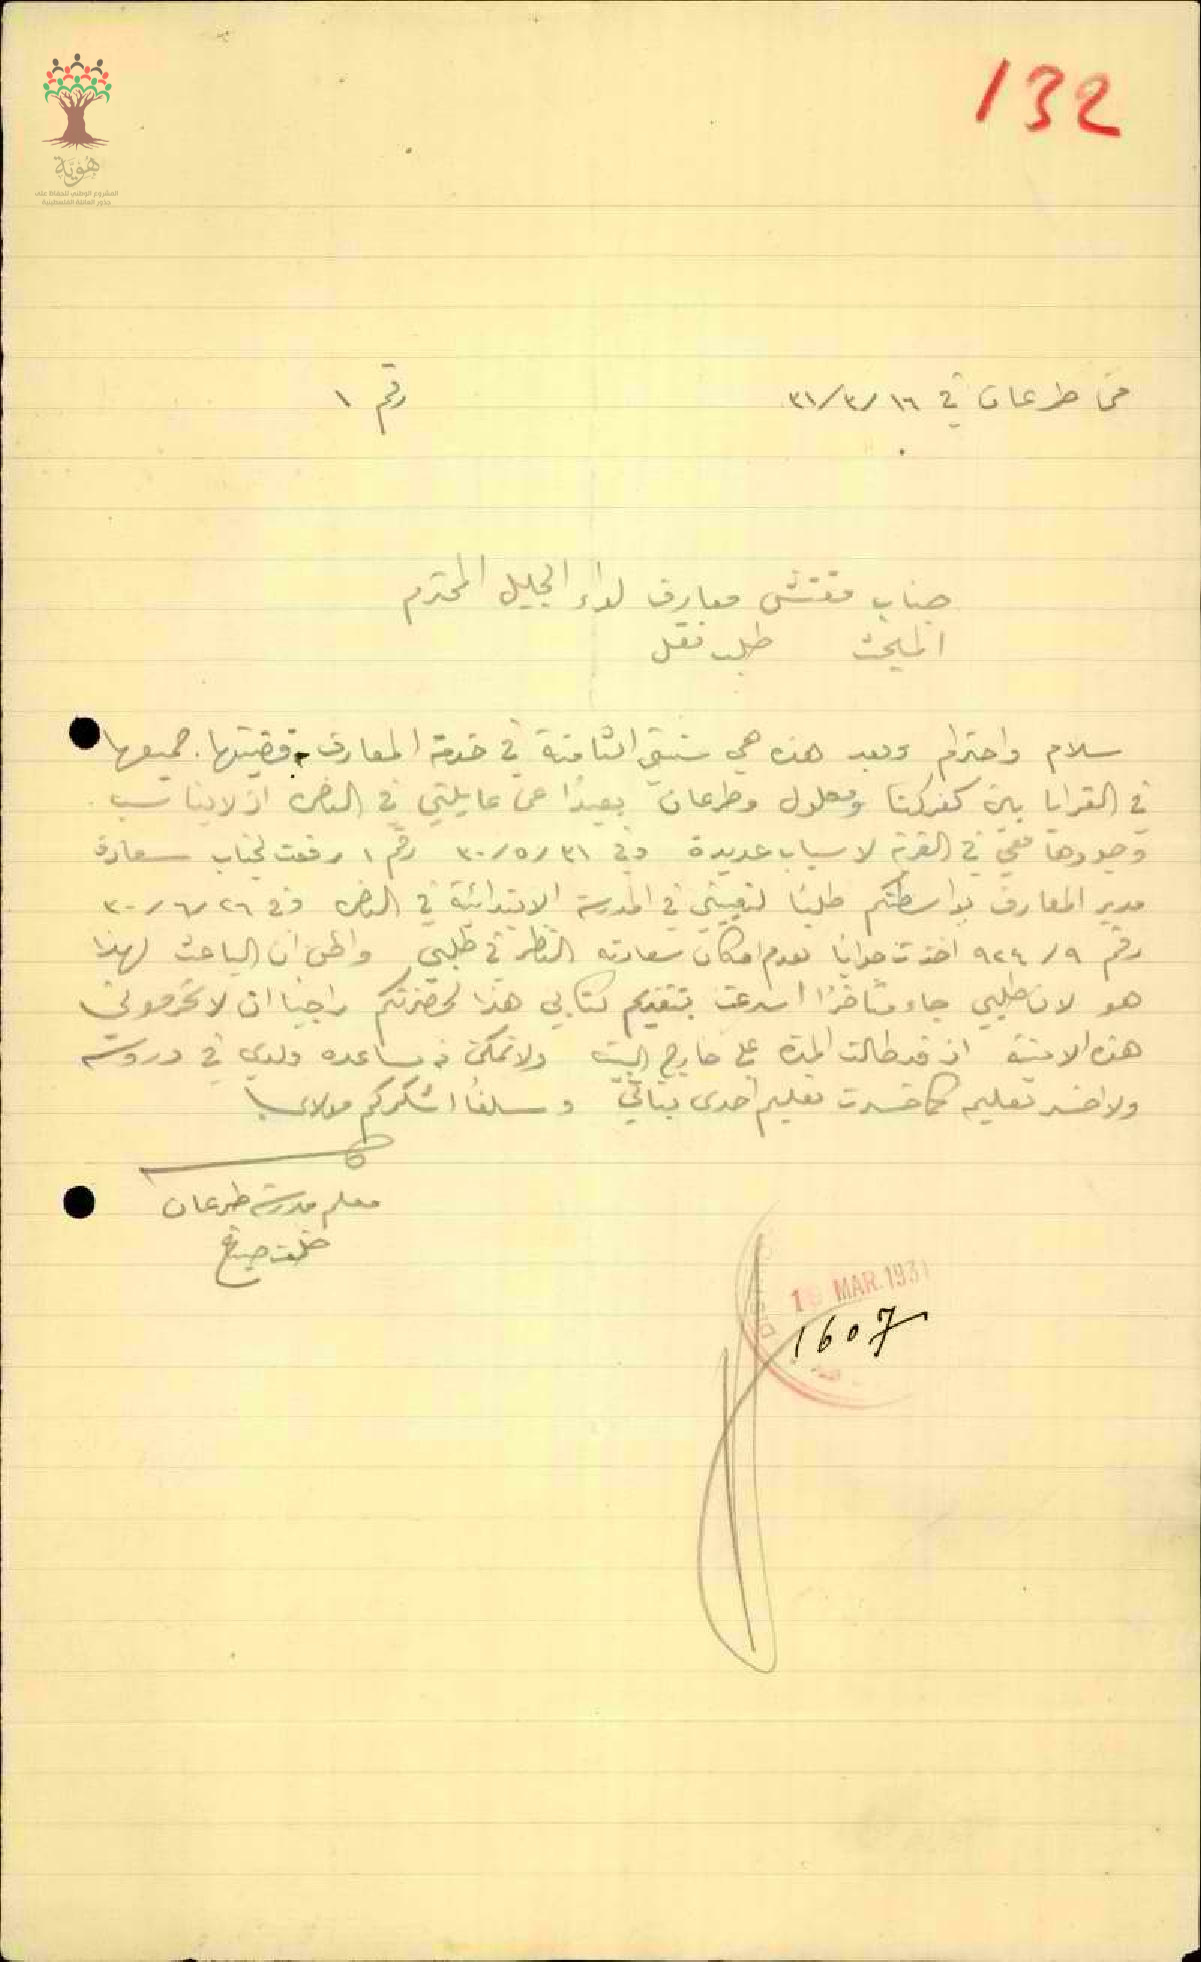 132
هُوِيَّة
المشروع الوطني للحفاظ على
جذور العائلة الفلسطينية
من طرعان في ١٦/٣/٣١ رقم ١
جناب مفتش معارف لواء الجليل المحترم
المبحث طلب نقل
سلام واحترام وبعد هذه هي سنتي الثامنة في خدمة المعارف قضيتها جميعها
في القرايا بين كفركنا ومعلول وطرعان بعيدًا عن عايلتي في الناصرة اذ لا يناسب
وجودها معي في القرية لاسباب عديدة وفي ٣١/٥/٣٠ رقم ١ رفعت لجناب سعادة
مدير المعارف بواسطتكم طلبًا لتعييني في المدرسة الابتدائية في الناصرة وفي ٢٦/٦/٣٠
رقم ٩/٩٢٤ اخذت جوابًا بعدم امكان سعادته النظر في طلبي واظن ان الباعث لهذا
هو لان طلبي جاء متأخرًا اسرعت بتقديم كتابي هذا لحضرتكم راجيًا ان لا تحرموني
هذه الامنية اذ قد طالت المدة علي خارج البيت ولاتمكن من مساعدة ولدي في دروسه
ولا اخسر تعليمه كما خسرت تعليم احدى بناتي وسلفًا اشكركم مولاي
معلم مدرسة طرعان
19 MAR.1931
1607